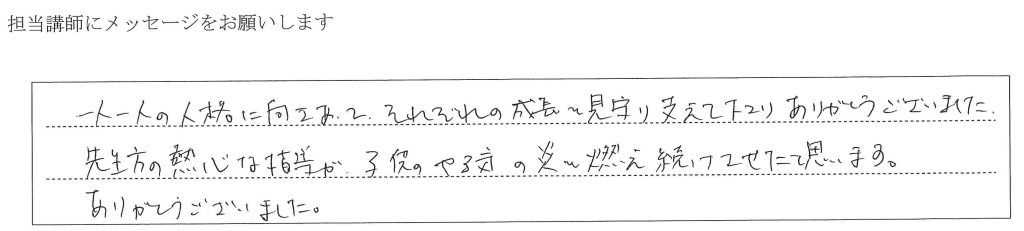 担当講師にメッセージをお願いします
一人一人の人格に向き合って、それぞれの成長を見守り支えて下さり ありがとうございました。
先生方の熱心な指導が、子供のやる気の炎を燃え続けさせたと思います。
ありがとうございました。